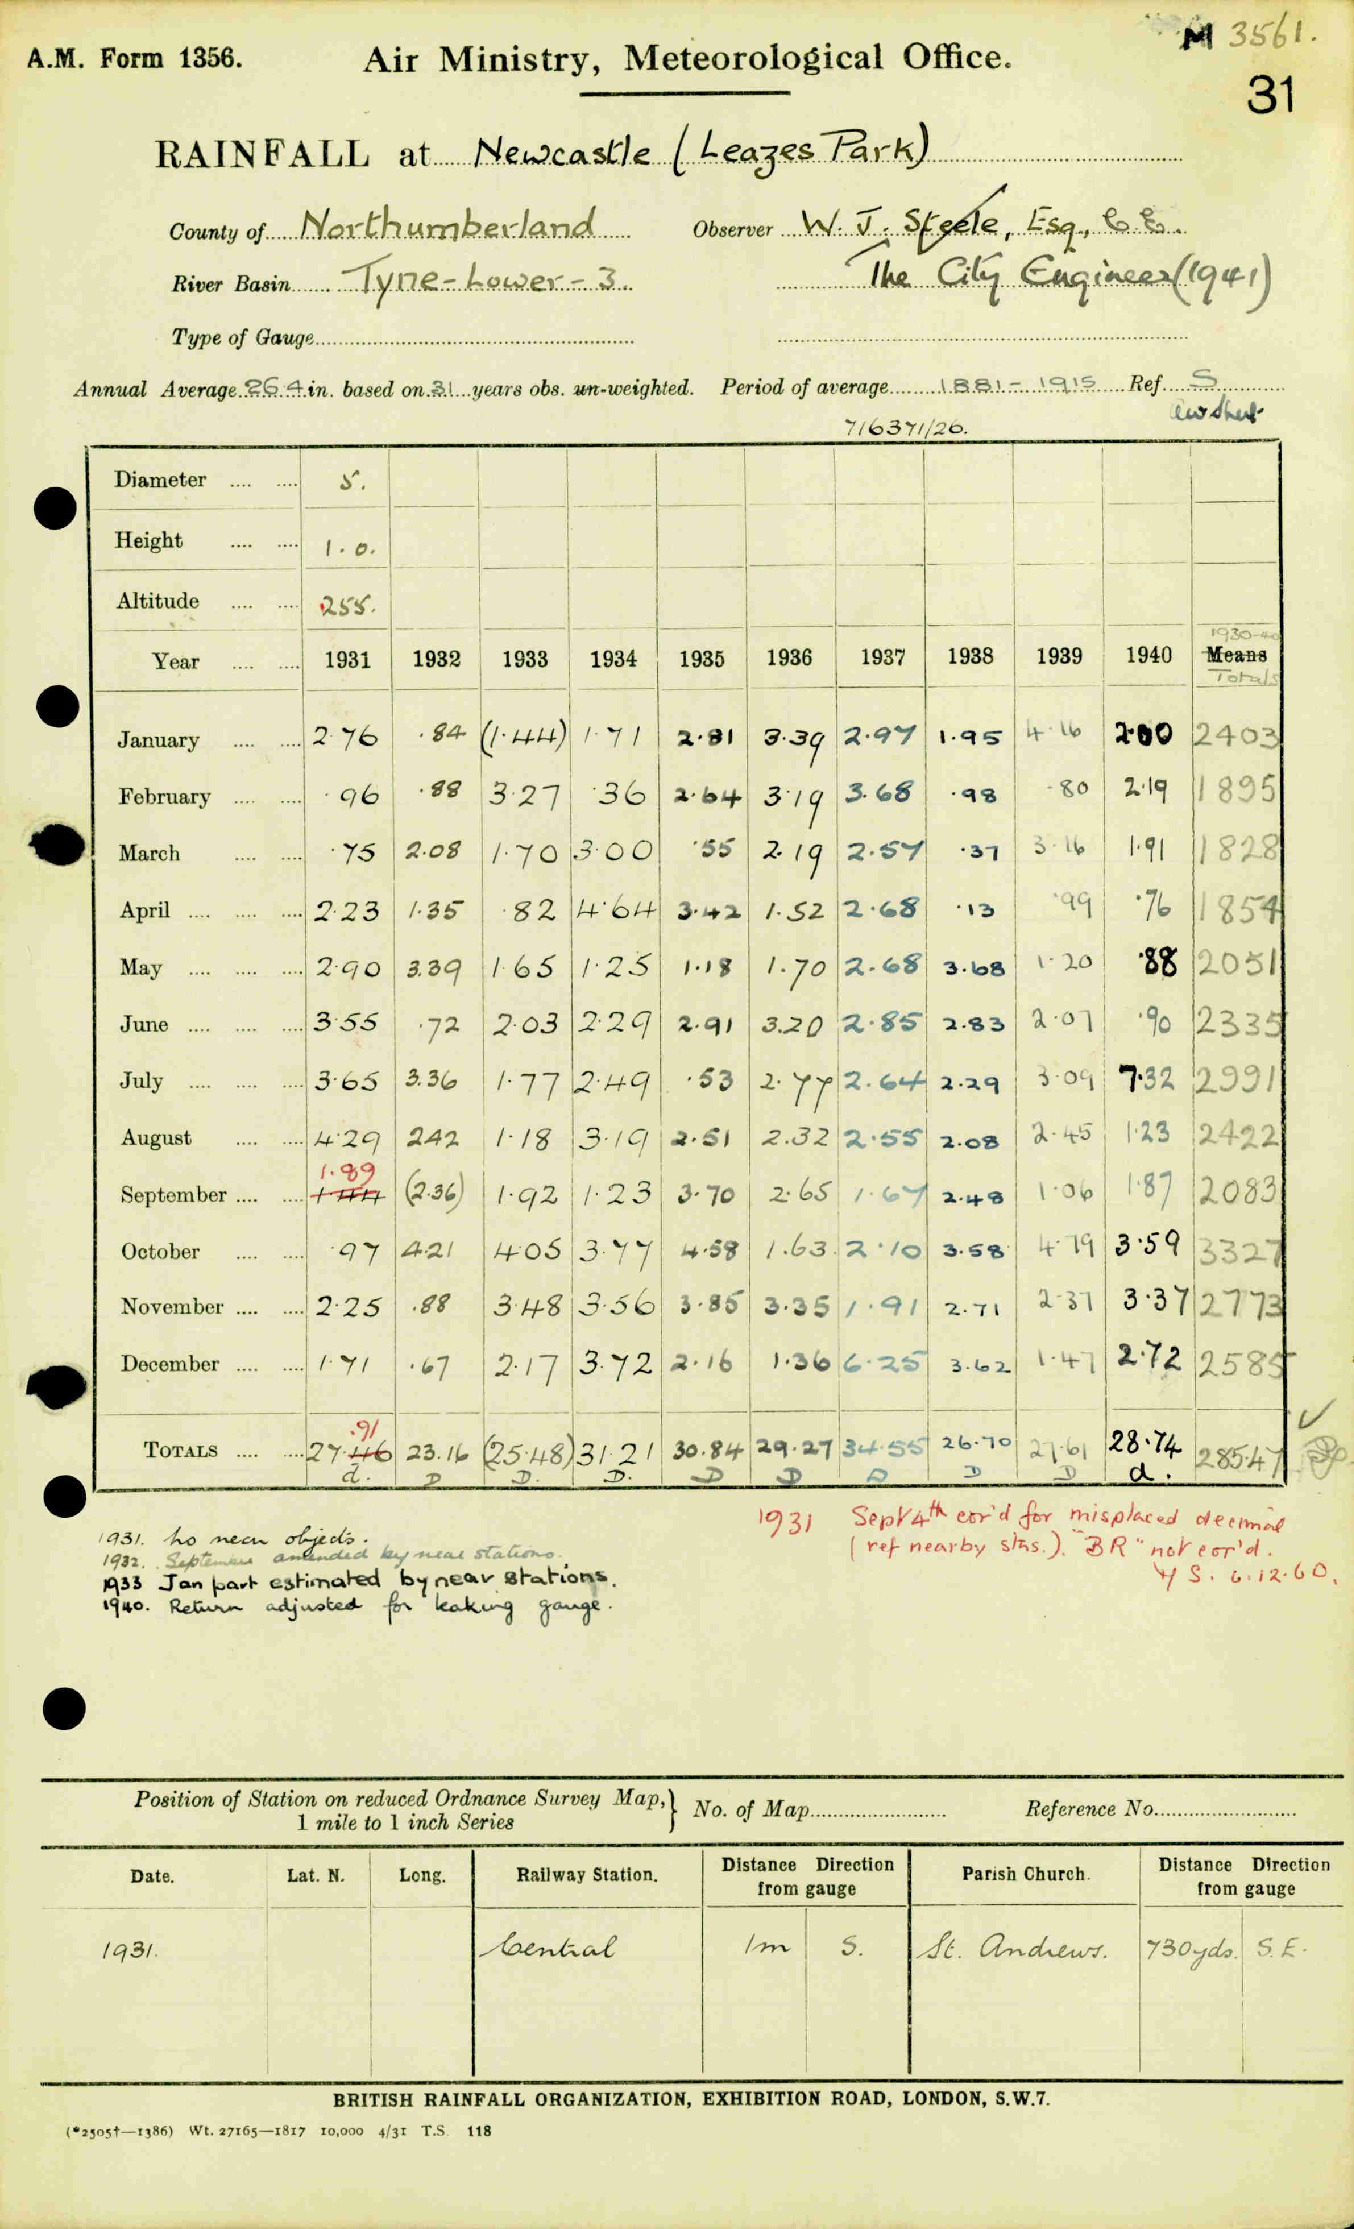 M 3561.
A.M. Form 1356. Air Ministry, Meteorological Office.
31
RAINFALL at Newcastle (Leazes Park)
County of Northumberland Observer W. J. Steele, Esq., C.E.
River Basin Tyne-Lower-3. The City Engineer (1941)
Type of Gauge
Annual Average 26.4 in. based on 31 years obs. un-weighted. Period of average 1881-1915 Ref. S
716371/26.
Diameter .... .... 5.
Height .... .... 1.0.
Altitude .... .... 255.
1930-40
Year .... .... 1931 1932 1933 1934 1935 1936 1937 1938 1939 1940 Means
Totals
January .... .... 2.76 .84 (1.44) 1.71 2.81 3.39 2.97 1.95 4.16 2.00 2403
February .... .... .96 .88 3.27 .36 2.64 3.19 3.68 .98 .80 2.19 1895
March .... .... .75 2.08 1.70 3.00 .55 2.19 2.57 .37 3.16 1.91 1828
April .... .... .... 2.23 1.35 .82 4.64 3.42 1.52 2.68 .13 .99 .76 1854
May .... .... .... 2.90 3.39 1.65 1.25 1.18 1.70 2.68 3.68 1.20 .88 2051
June .... .... .... 3.55 .72 2.03 2.29 2.91 3.20 2.85 2.83 2.07 .90 2335
July .... .... .... 3.65 3.36 1.77 2.49 .53 2.77 2.64 2.29 3.09 7.32 2991
August .... .... 4.29 2.42 1.18 3.19 2.51 2.32 2.55 2.08 2.45 1.23 2422
1.89
September .... .... 1.44 (2.36) 1.92 1.23 3.70 2.65 1.67 2.48 1.06 1.87 2083
October .... .... .97 4.21 4.05 3.77 4.58 1.63 2.10 3.58 4.79 3.59 3327
November .... .... 2.25 .88 3.48 3.56 3.85 3.35 1.91 2.71 2.37 3.37 2773
December .... .... 1.71 .67 2.17 3.72 2.16 1.36 6.25 3.62 1.47 2.72 2585
.91
TOTALS .... .... 27.46 23.16 (25.48) 31.21 30.84 29.27 34.55 26.70 27.61 28.74 28547
d. D D. D. D D D D D d.
1931. No near objects.
1932. September amended by near stations.
1933 Jan part estimated by near stations.
1940. Return adjusted for leaking gauge.
1931 Sept 4th cor'd for misplaced decimal
(ref nearby stns.). "BR" not cor'd.
S. 6.12.60.
Position of Station on reduced Ordnance Survey Map, } No. of Map Reference No.
1 mile to 1 inch Series
Date. Lat. N. Long. Railway Station. Distance Direction from gauge Parish Church. Distance Direction from gauge
1931. Central 1m S. St. Andrews. 730yds. S.E.
BRITISH RAINFALL ORGANIZATION, EXHIBITION ROAD, LONDON, S.W.7.
(*2505†—1386) Wt. 27165—1817 10,000 4/31 T.S. 118